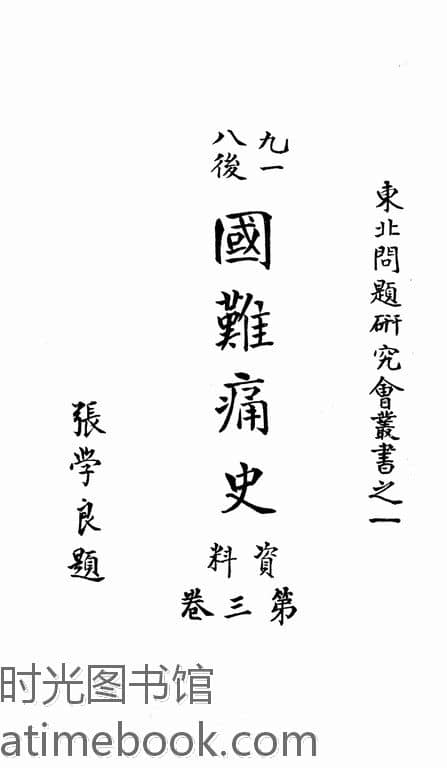 東北問題研究會叢書之一
九一八後
國難痛史
資料
第三卷
張学良題
时光图书馆
atimebook.com